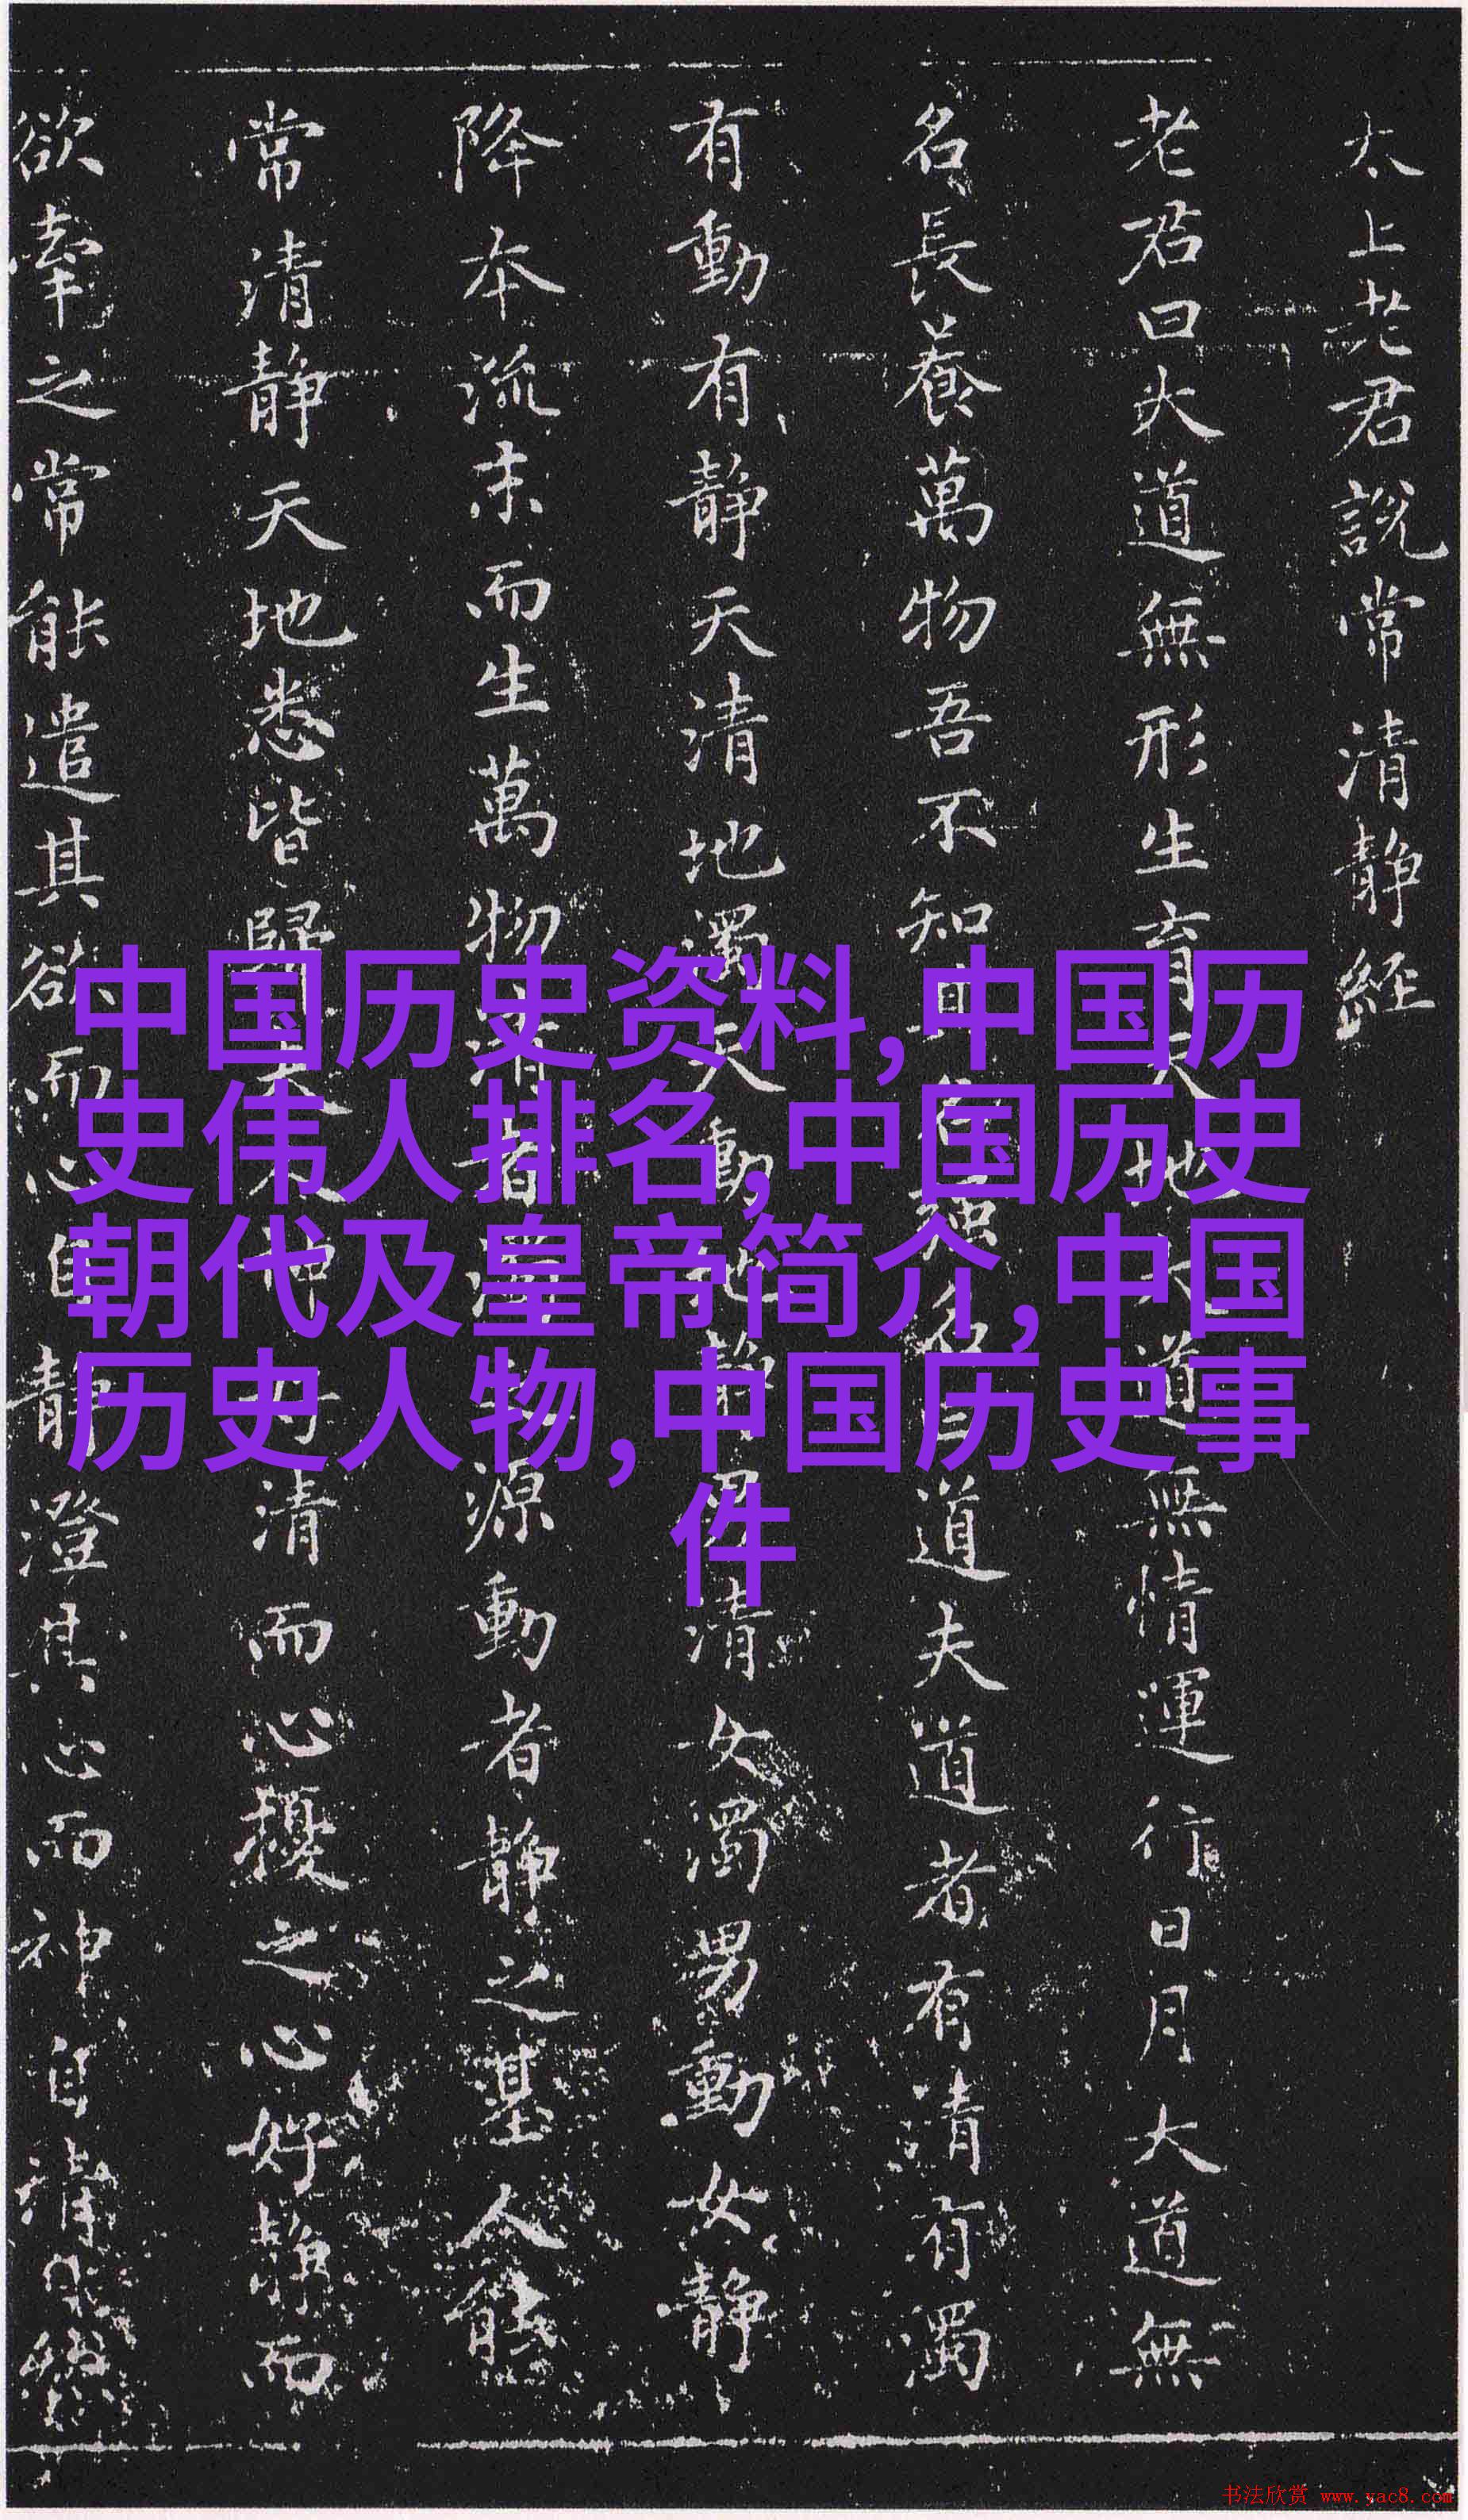 太上老君說常清静經
老君曰大道無形生育天地大道無情運行日月大道無
名長養萬物吾不知其名强名曰道夫道者有清有濁
有動有静天清地濁天動地静男清女濁男動女静
降本流末而生萬物清者濁之源動者静之基人能
常清静天地悉皆歸夫人神好清而心擾之心好静而
欲牽之常能遣其欲而心自静澄其心而神自清
中国历史资料,中国历
史伟人排名,中国历史
朝代及皇帝简介,中国
历史人物,中国历史事
件
书法欣赏 www.yac8.com